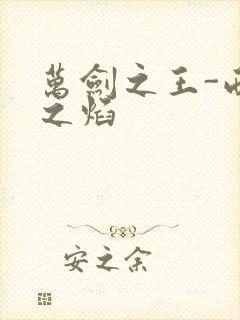 萬劍之王-
之焰
安之余